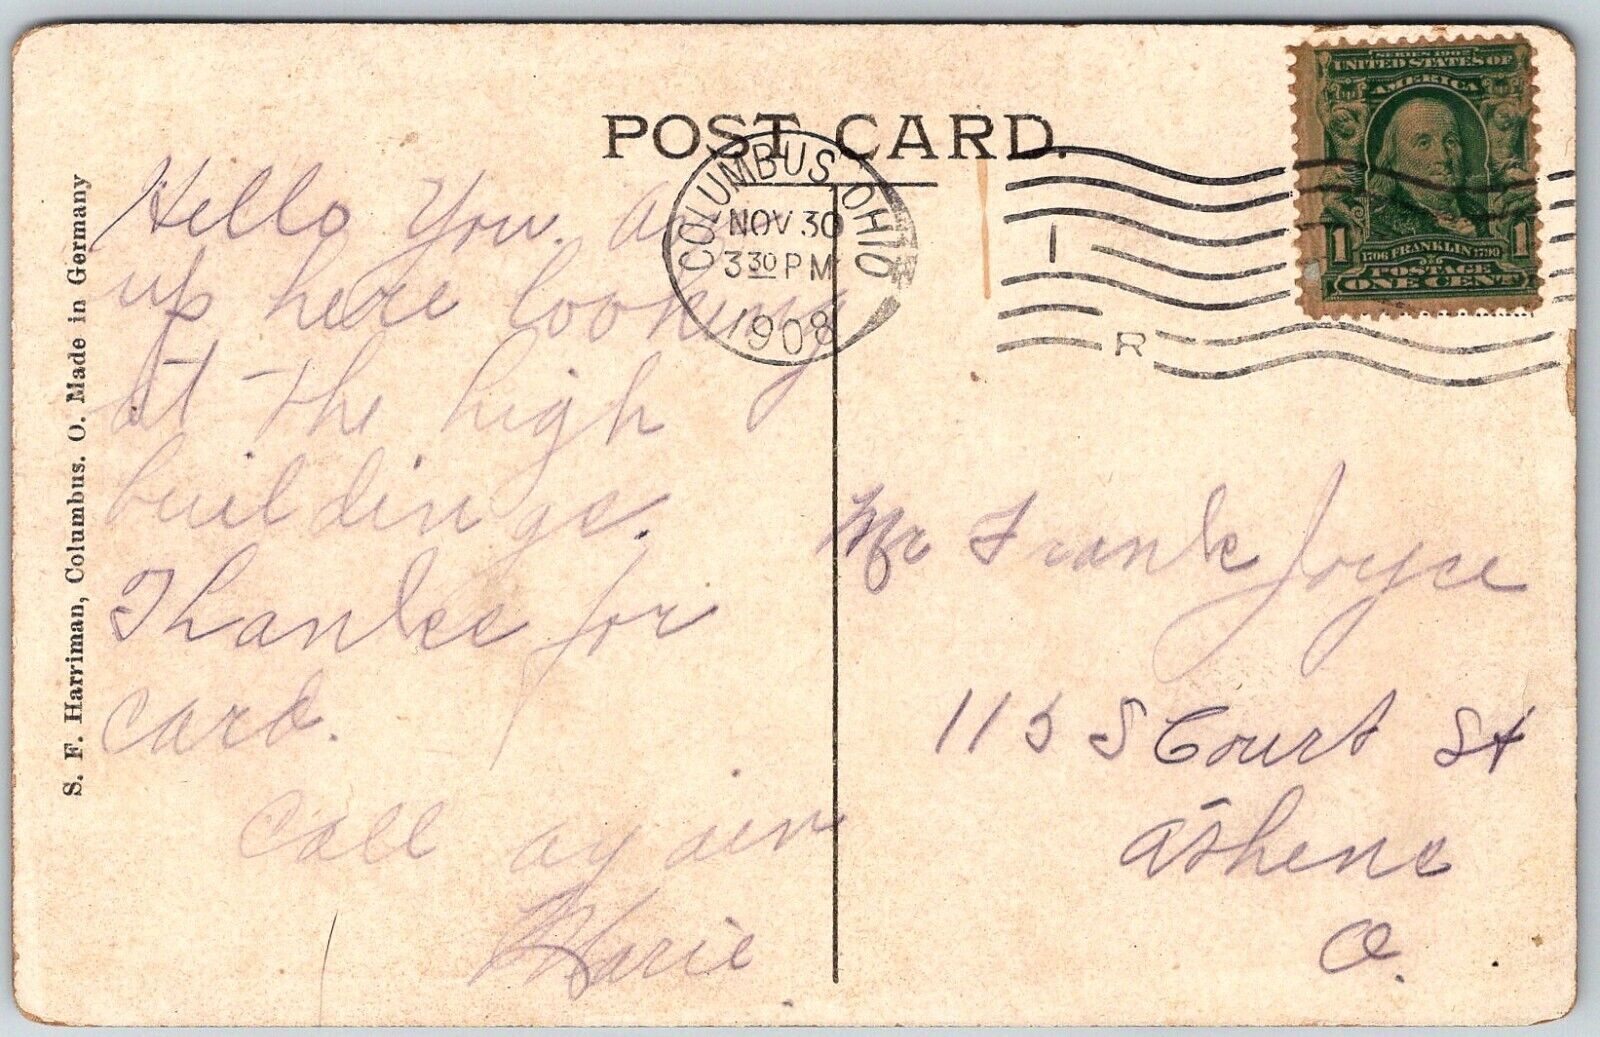 POST CARD.
COLUMBUS, OHIO
NOV 30
3 30 PM
1908
1
R
SERIES 1902
UNITED STATES OF
AMERICA
1 1
1706 FRANKLIN 1790
POSTAGE
ONE CENT
S. F. Harriman, Columbus. O. Made in Germany
Hello You. am
up here looking
at the high
buildings.
Thanks for
card.
Call again
Marie
Mr Frank Joyce
115 S Court St
Athens
O.